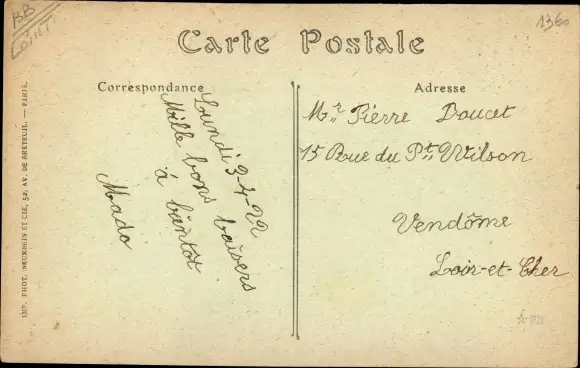 BB
LOIRET
1360
Carte Postale
Correspondance
Adresse
Lundi 3-4-22
Mille bons baisers
à bientôt
Mado
Mr Pierre Doucet
15 Rue du Pt Wilson
Vendôme
Loir-et-Cher
IMP. PHOT. NEURDEIN ET CIE, 52, AV. DE BRETEUIL. — PARIS.